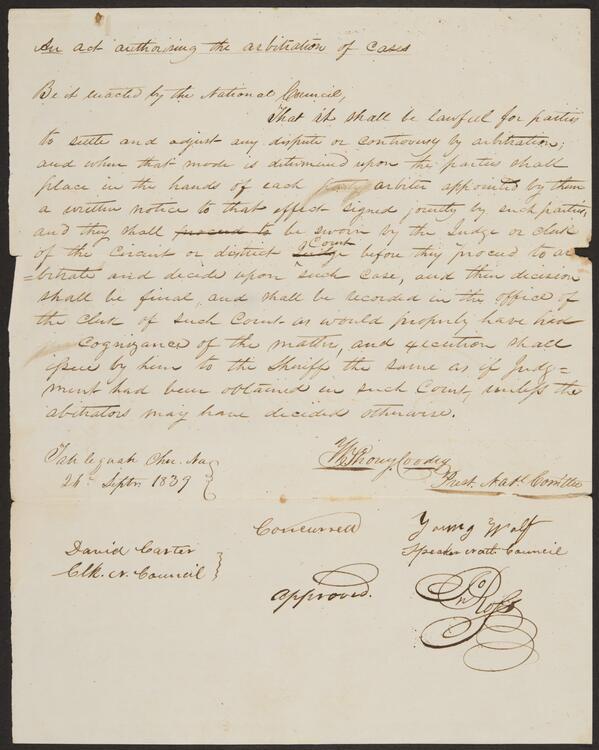 An act authorising the arbitration of Cases
Be it enacted by the National Council,
That it shall be lawful for parties
to settle and adjust any dispute or controversy by arbitration;
and when that mode is determined upon the parties shall
place in the hands of each party arbiter appointed by them
a written notice to that effect signed jointly by such parties,
and they shall proceed to be sworn by the Judge or clerk
of the Circuit or district Judge Court before they proceed to ar
=bitrate and decide upon such case, and their decision
shall be final, and shall be recorded in the office of
the clerk of such Court as would properly have had
Cognizance of the matter, and execution shall
issue by him to the Sheriff the same as if Judg=
ment had been obtained in such Court, unless the
abitrators may have decided otherwise.
Tahlequah Cher. Na
24th Septr 1839
Wm Shorey Coodey
Prest. Natl Comittee
Concurred
Young Wolf
Speaker Natl Council
David Carter
Clk. N. Council
Approved.
Jno Ross